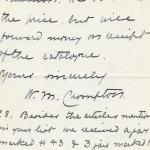 the price, but will
forward money on receipt
of the catalogue.
Yours sincerely
W. M. Crompton
P.S. Besides the articles mention
in your list we received a jar
marked # 43 & 3 jars marked